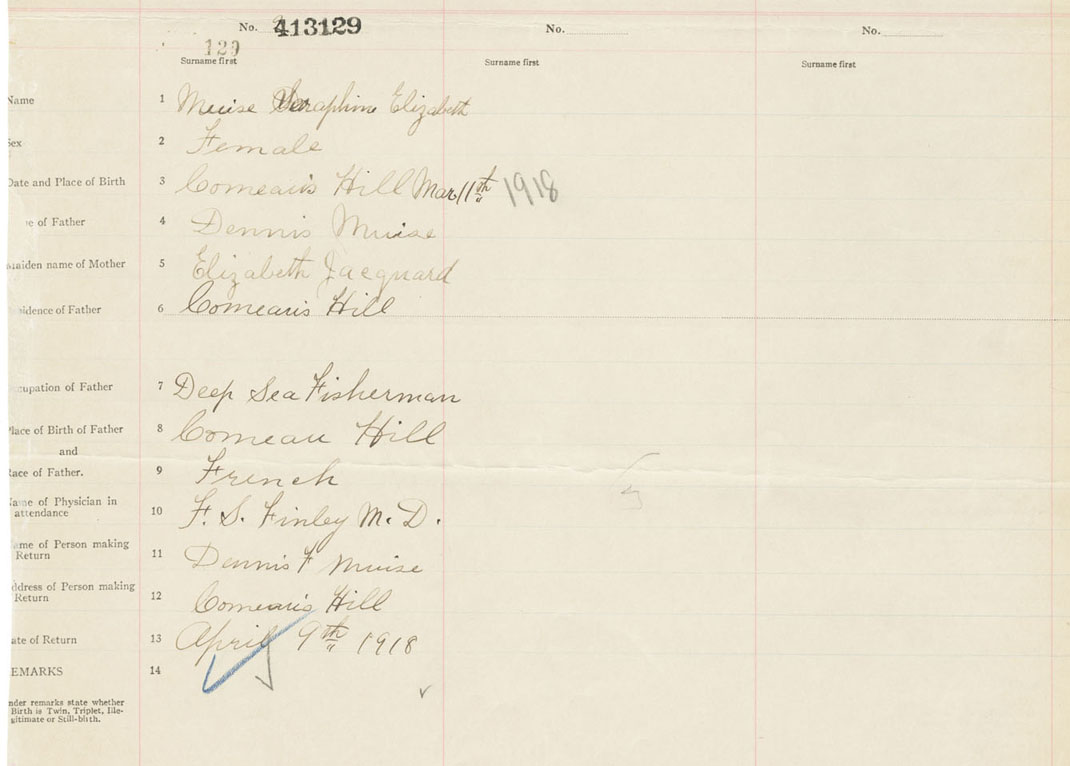 No. 413129 No. No.
129
Surname first Surname first Surname first
Name 1 Muise Seraphine Elizabeth
Sex 2 Female
Date and Place of Birth 3 Comeau's Hill Mar 11th 1918
e of Father 4 Dennis Muise
Maiden name of Mother 5 Elizabeth Jacquard
idence of Father 6 Comeau's Hill
cupation of Father 7 Deep Sea Fisherman
Place of Birth of Father 8 Comeau Hill
and
Race of Father. 9 French
Name of Physician in
attendance 10 F. S. Finley M. D.
ame of Person making
Return 11 Dennis F Muise
ddress of Person making
Return 12 Comeau's Hill
ate of Return 13 April 9th 1918
EMARKS 14
nder remarks state whether
Birth is Twin, Triplet, Ille-
gitimate or Still-birth.